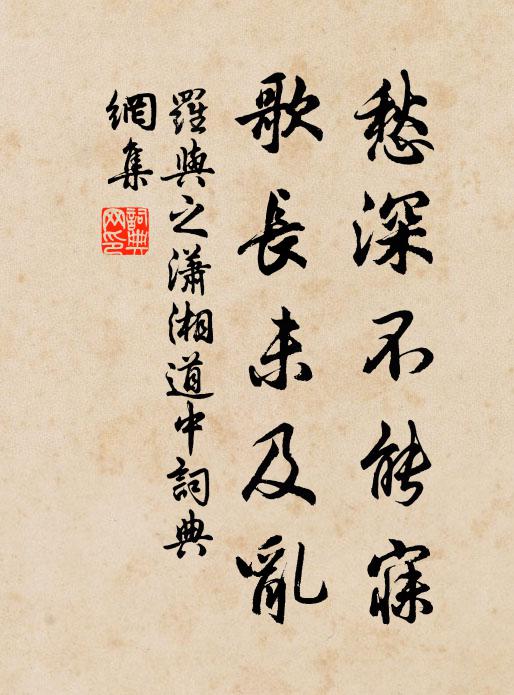 愁深不能寐
歌長未及亂
羅與之瀟湘道中詞典
網集
詞典網印